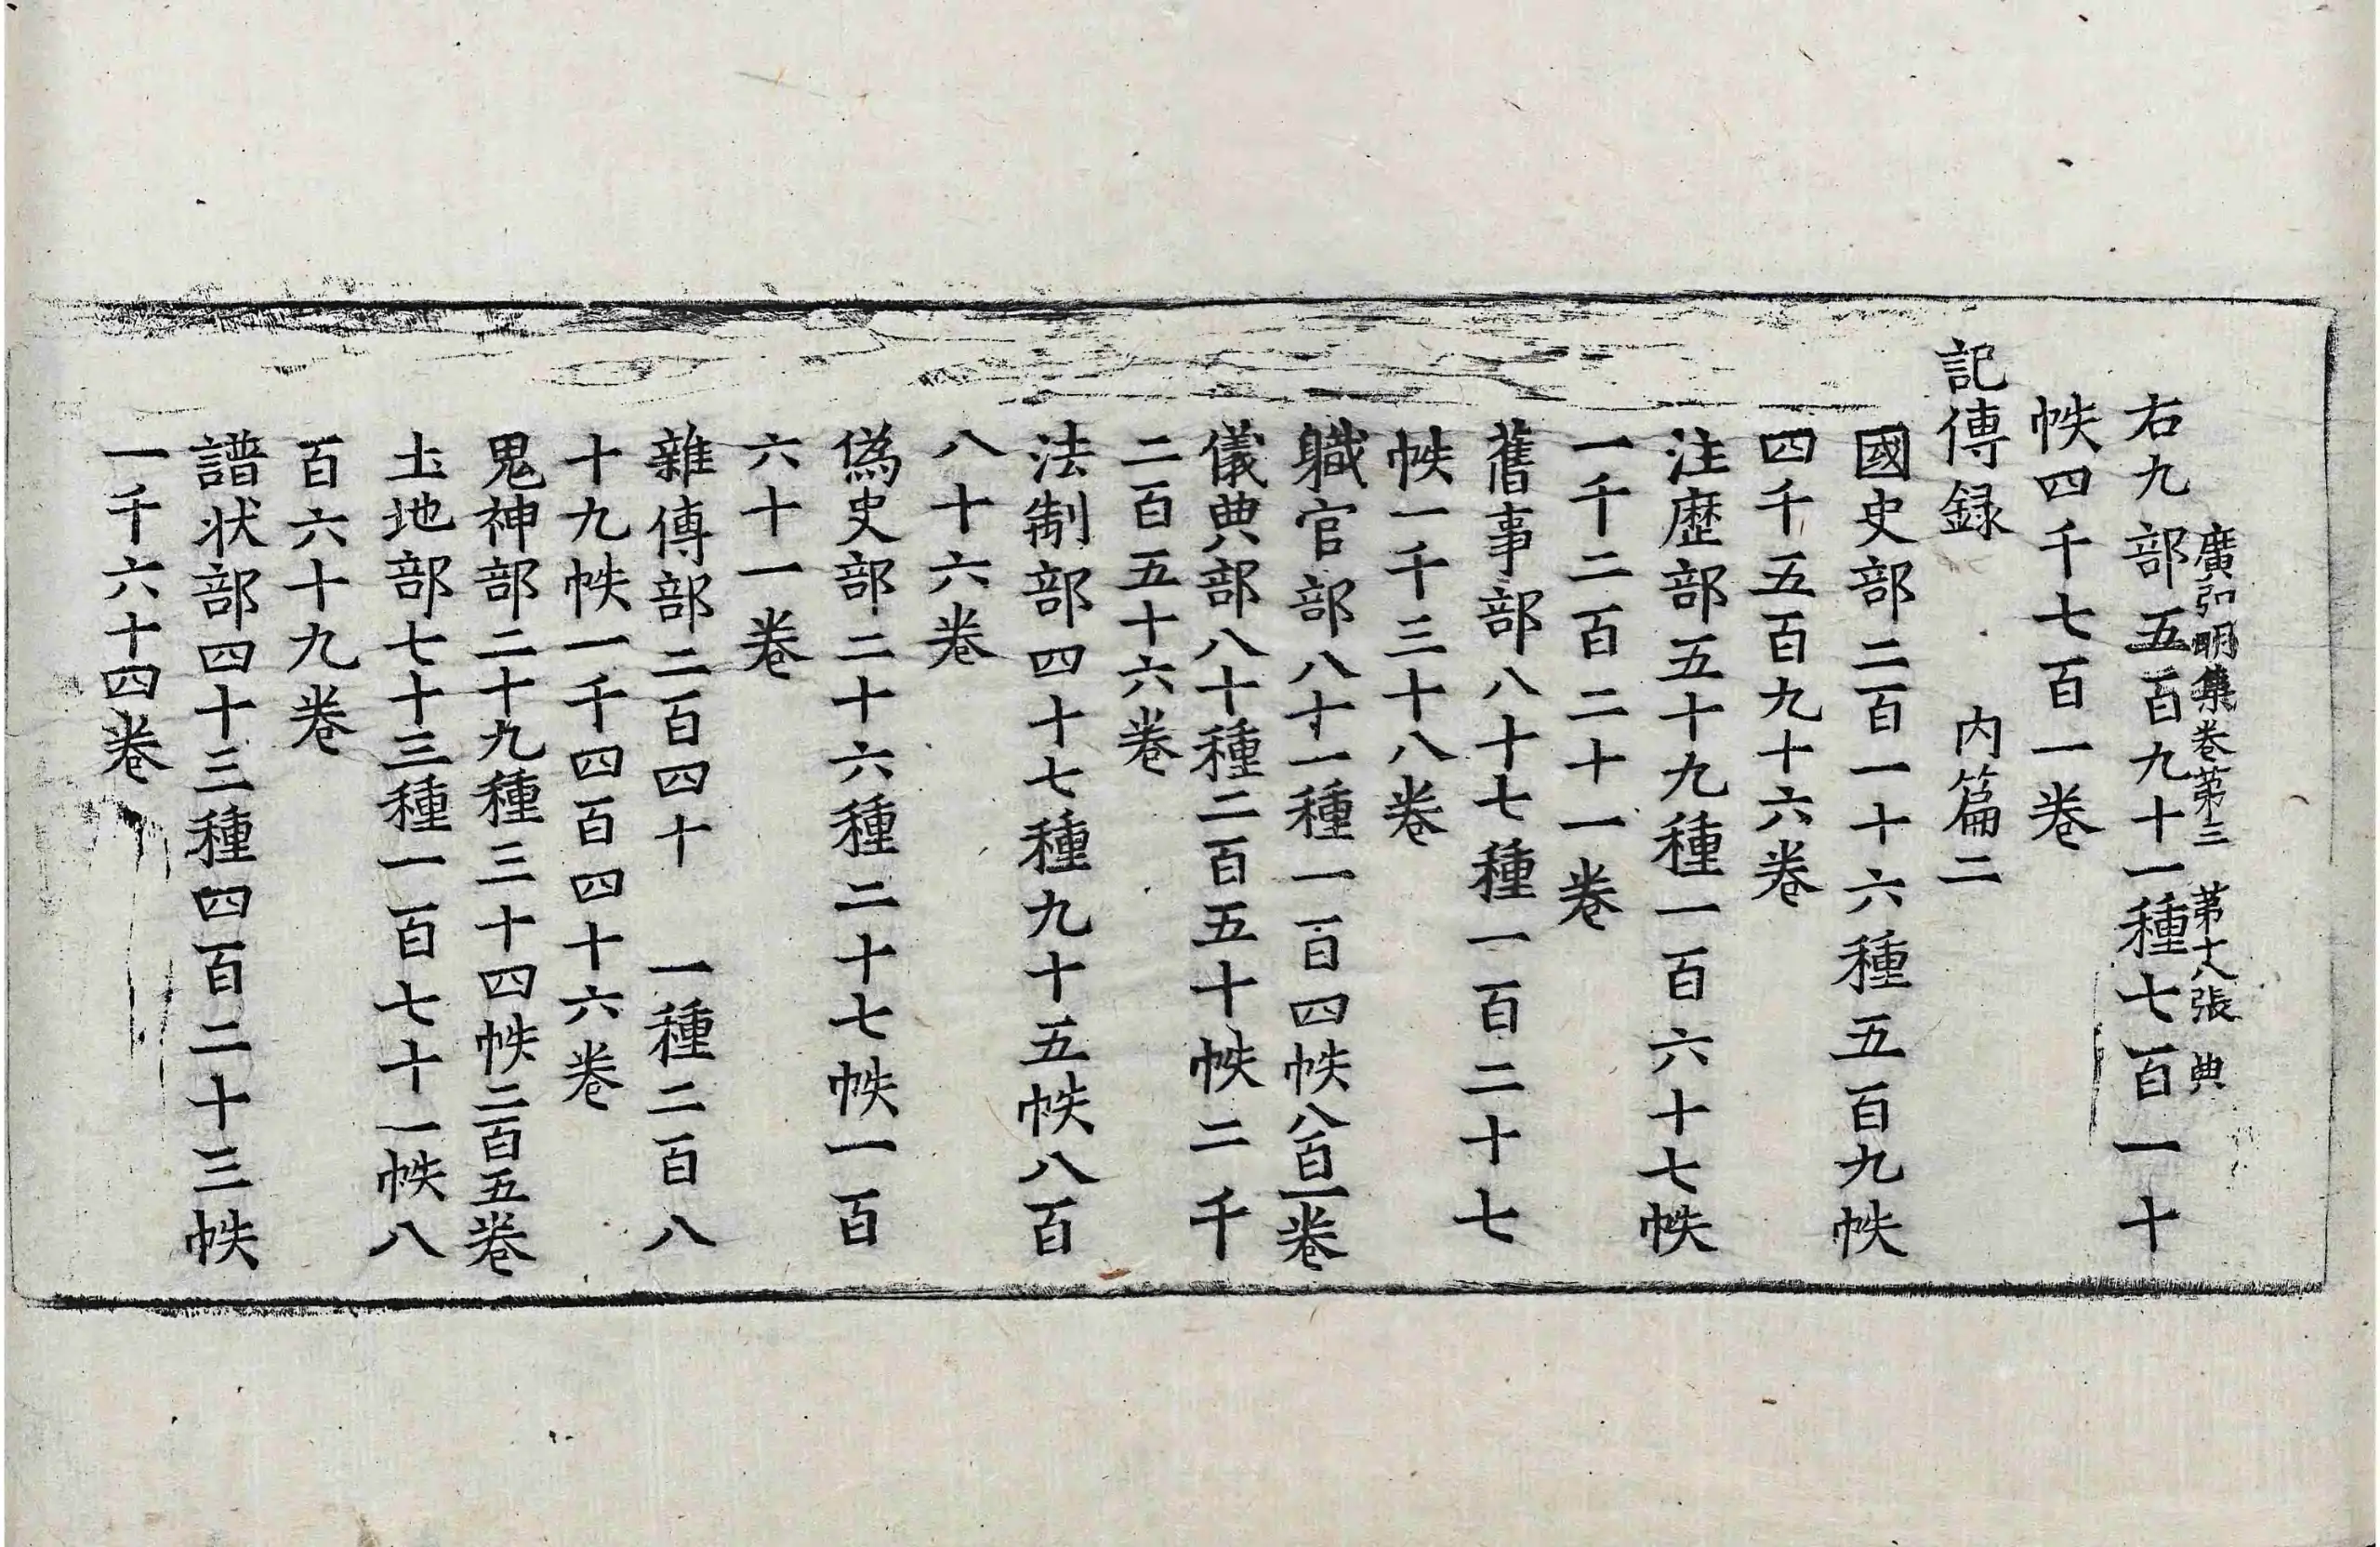 廣弘明集卷苐三　苐十八張　典
右九部五百九十一種七百一十
帙四千七百一卷
記傳録　内篇二
國史部二百一十六種五百九帙
四千五百九十六卷
注歷部五十九種一百六十七帙
一千二百二十一卷
舊事部八十七種一百二十七
帙一千三十八卷
軄官部八十一種一百四帙八百一卷
儀典部八十種二百五十帙二千
二百五十六卷
法制部四十七種九十五帙八百
八十六卷
僞史部二十六種二十七帙一百
六十一卷
雜傳部二百四十　一種二百八
十九帙一千四百四十六卷
鬼神部二十九種三十四帙二百五卷
土地部七十三種一百七十一帙八
百六十九卷
譜状部四十三種四百二十三帙
一千六十四卷